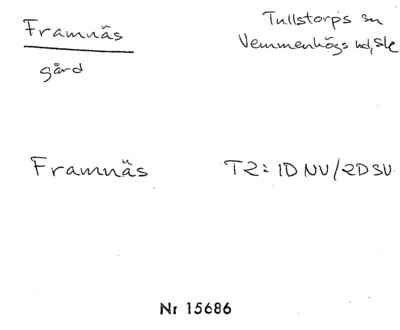 Framnäs
Tullstorps sn
gård
Vemmenhögs hd, Sk
Framnäs
T2: 1D NV/2D SV
Nr 15686